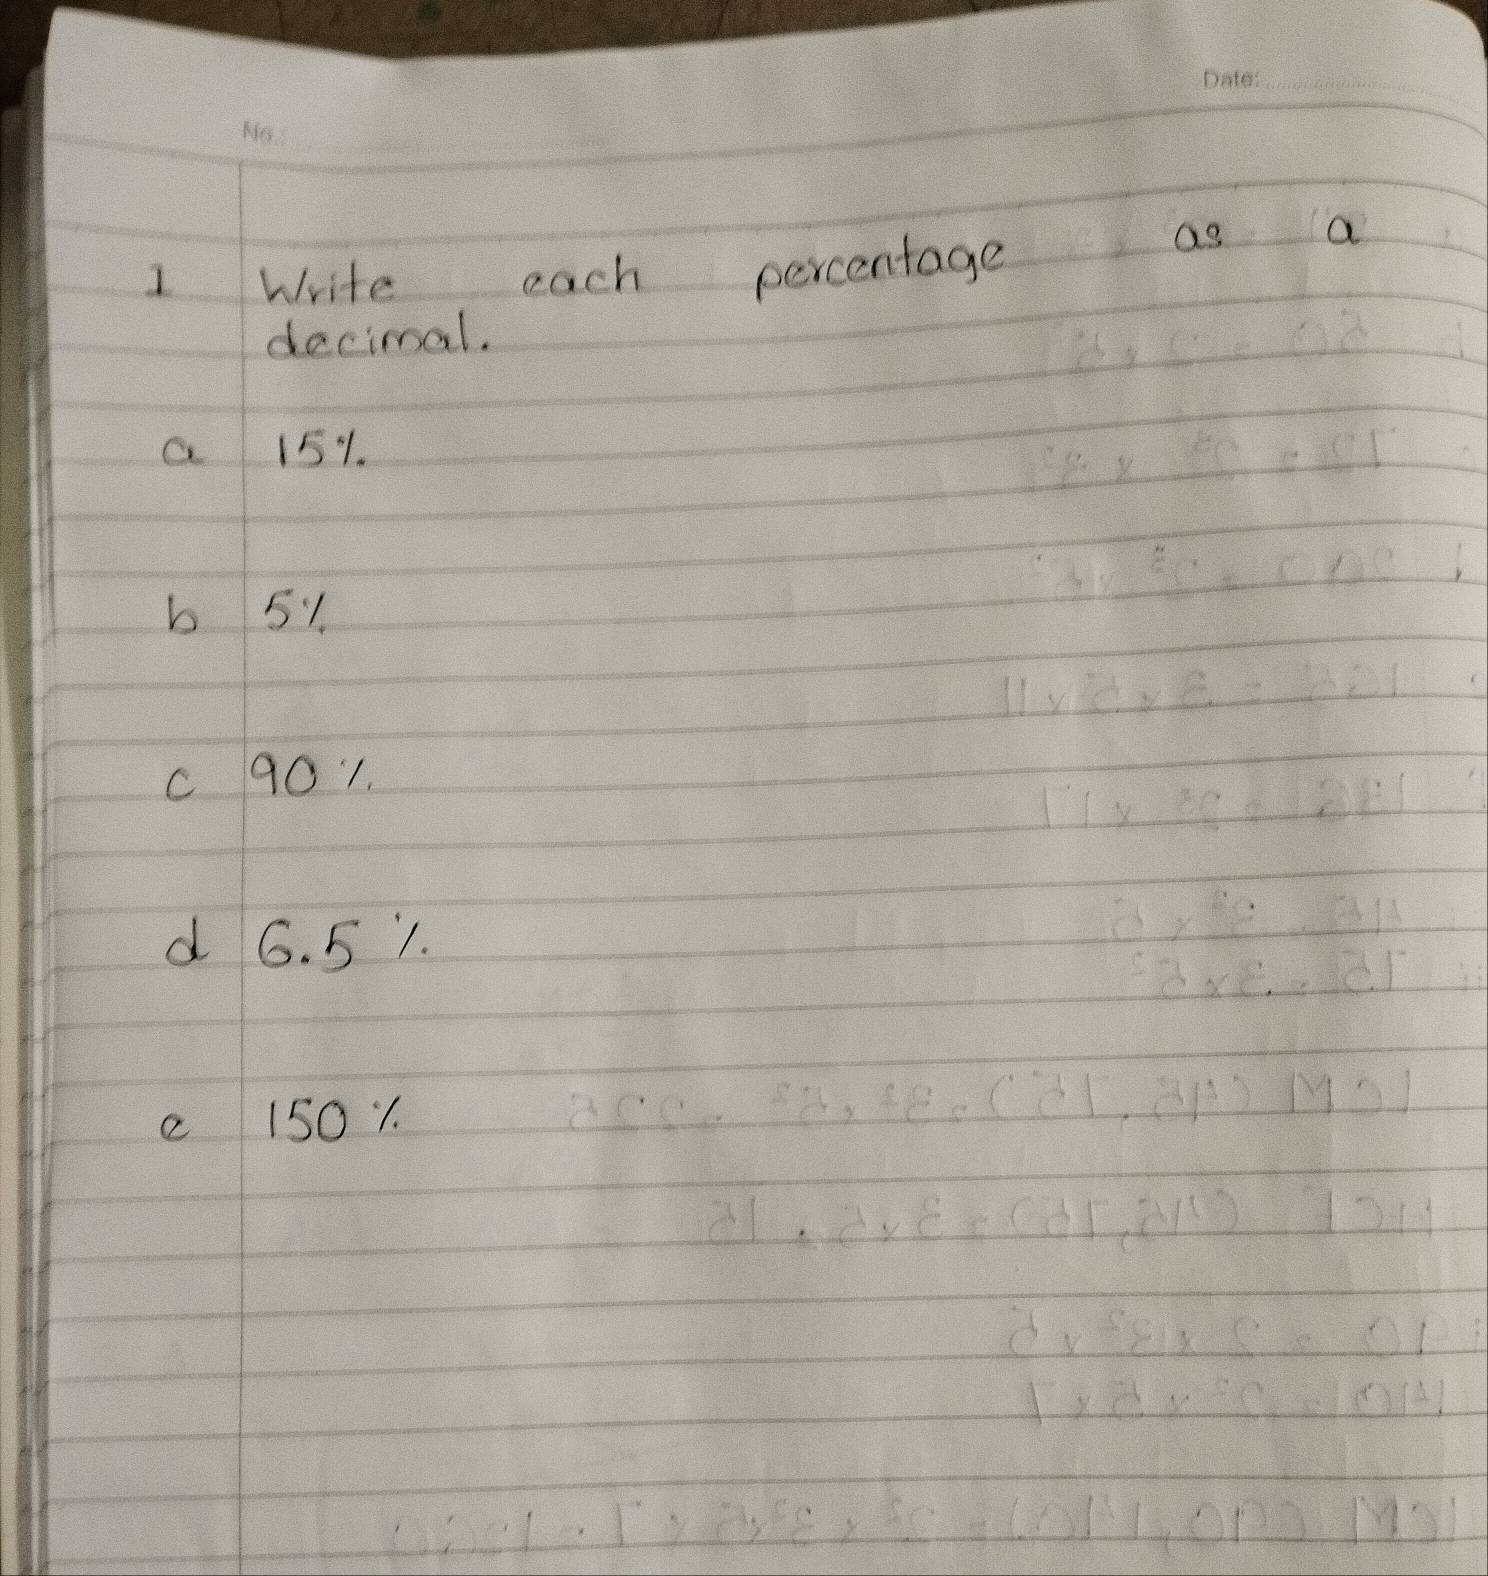 Date:
No.
1 Write each percentage as a
decimal.
a 15%
b 5%
c 90%
d 6.5%
e 150%